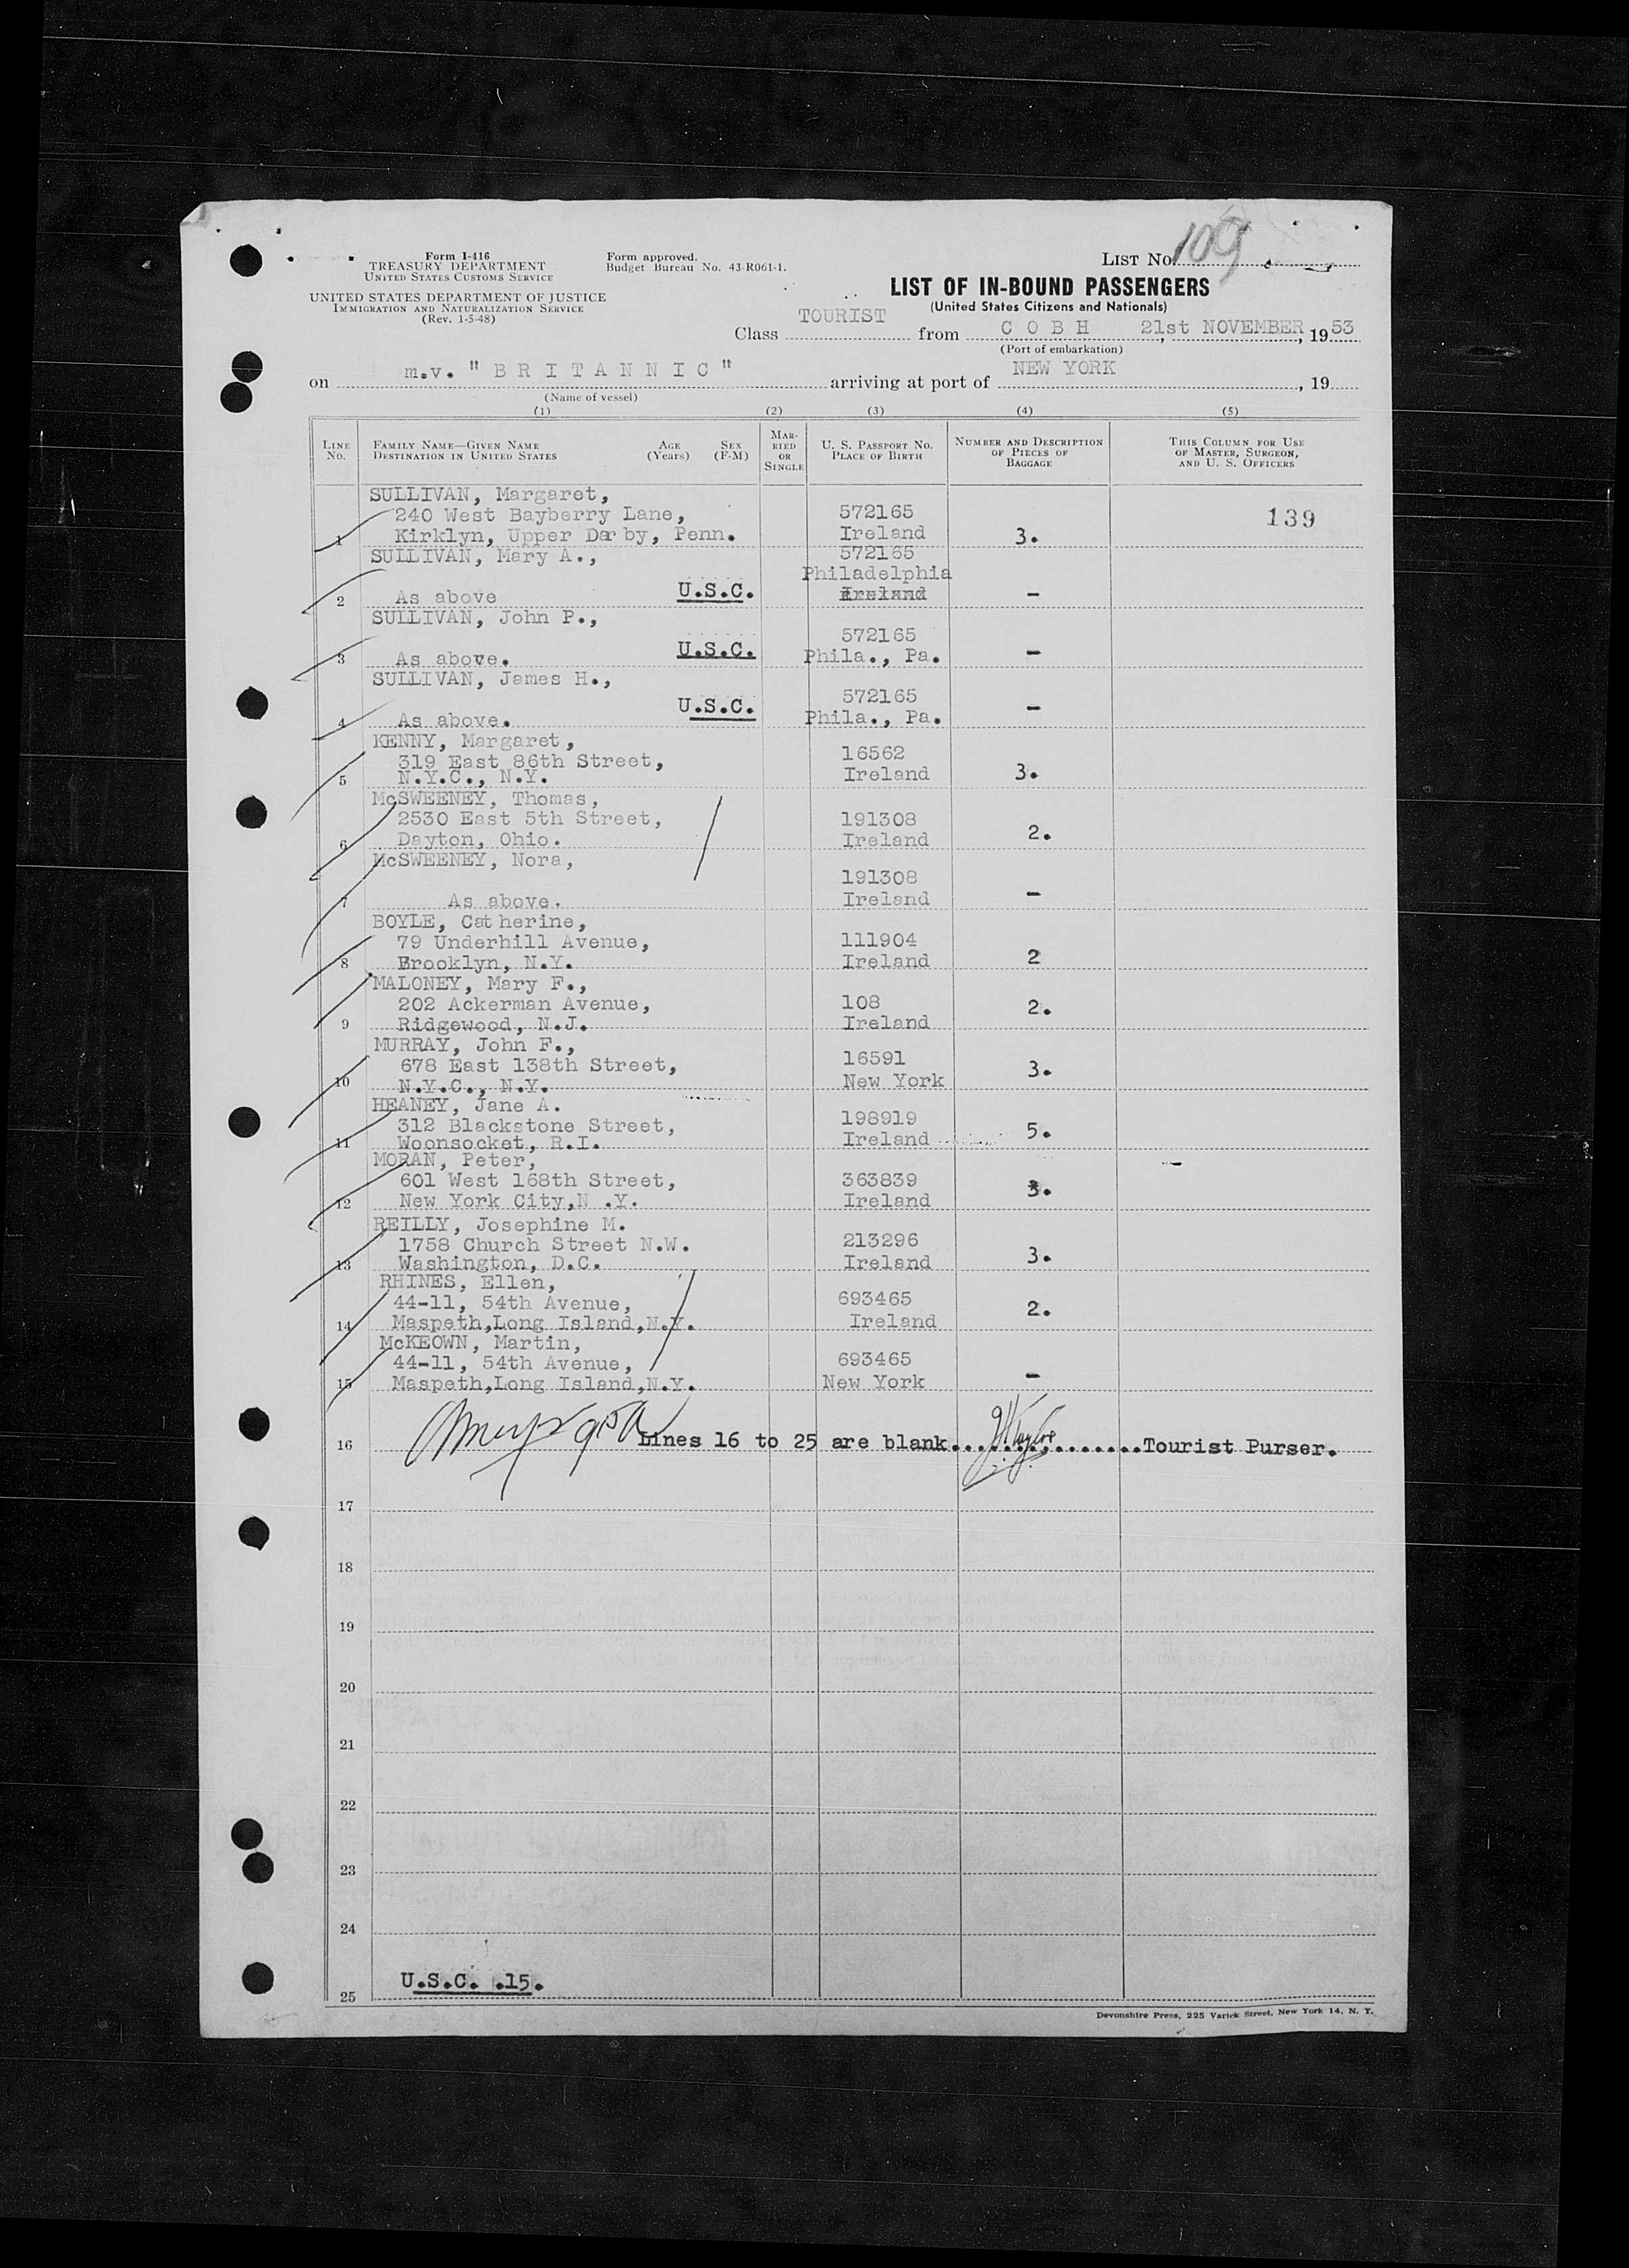 Form I-416
TREASURY DEPARTMENT
UNITED STATES CUSTOMS SERVICE
UNITED STATES DEPARTMENT OF JUSTICE
IMMIGRATION AND NATURALIZATION SERVICE
(Rev. 1-5-48)
Form approved.
Budget Bureau No. 43-R061-1.
LIST No. 109
LIST OF IN-BOUND PASSENGERS
(United States Citizens and Nationals)
Class TOURIST from C O B H, 21st NOVEMBER, 1953
(Port of embarkation)
on m.v. "B R I T A N N I C" arriving at port of NEW YORK, 19
(Name of vessel)
(1) (2) (3) (4) (5)
LINE No. FAMILY NAME—GIVEN NAME DESTINATION IN UNITED STATES AGE (Years) SEX (F-M) MARRIED OR SINGLE U. S. PASSPORT No. PLACE OF BIRTH NUMBER AND DESCRIPTION OF PIECES OF BAGGAGE THIS COLUMN FOR USE OF MASTER, SURGEON, AND U. S. OFFICERS
SULLIVAN, Margaret,
240 West Bayberry Lane, 572165 139
1 Kirklyn, Upper Darby, Penn. Ireland 3.
SULLIVAN, Mary A., 572165
Philadelphia
2 As above U.S.C. Ireland -
SULLIVAN, John P.,
572165
3 As above. U.S.C. Phila., Pa. -
SULLIVAN, James H.,
572165
4 As above. U.S.C. Phila., Pa. -
KENNY, Margaret,
319 East 86th Street, 16562
5 N.Y.C., N.Y. Ireland 3.
McSWEENEY, Thomas,
2530 East 5th Street, 191308
6 Dayton, Ohio. Ireland 2.
McSWEENEY, Nora,
191308
7 As above. Ireland -
BOYLE, Catherine,
79 Underhill Avenue, 111904
8 Brooklyn, N.Y. Ireland 2
MALONEY, Mary F.,
202 Ackerman Avenue, 108
9 Ridgewood, N.J. Ireland 2.
MURRAY, John F.,
678 East 138th Street, 16591
10 N.Y.C., N.Y. New York 3.
HEANEY, Jane A.
312 Blackstone Street, 198919
11 Woonsocket, R.I. Ireland 5.
MORAN, Peter,
601 West 168th Street, 363839
12 New York City,N .Y. Ireland 3.
REILLY, Josephine M.
1758 Church Street N.W. 213296
13 Washington, D.C. Ireland 3.
RHINES, Ellen,
44-11, 54th Avenue, 693465
14 Maspeth,Long Island,N.Y. Ireland 2.
McKEOWN, Martin,
44-11, 54th Avenue, 693465
15 Maspeth,Long Island,N.Y. New York -
16 Lines 16 to 25 are blank. Tourist Purser.
17
18
19
20
21
22
23
24
U.S.C. .15.
25
Devonshire Press, 225 Varick Street, New York 14, N. Y.